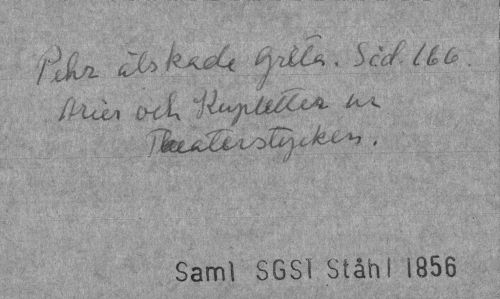 Pehr älskade Greta. Sid. 166.
Arier och Kupletter ur
Theaterstycken.
Saml SGSl Ståhl 1856